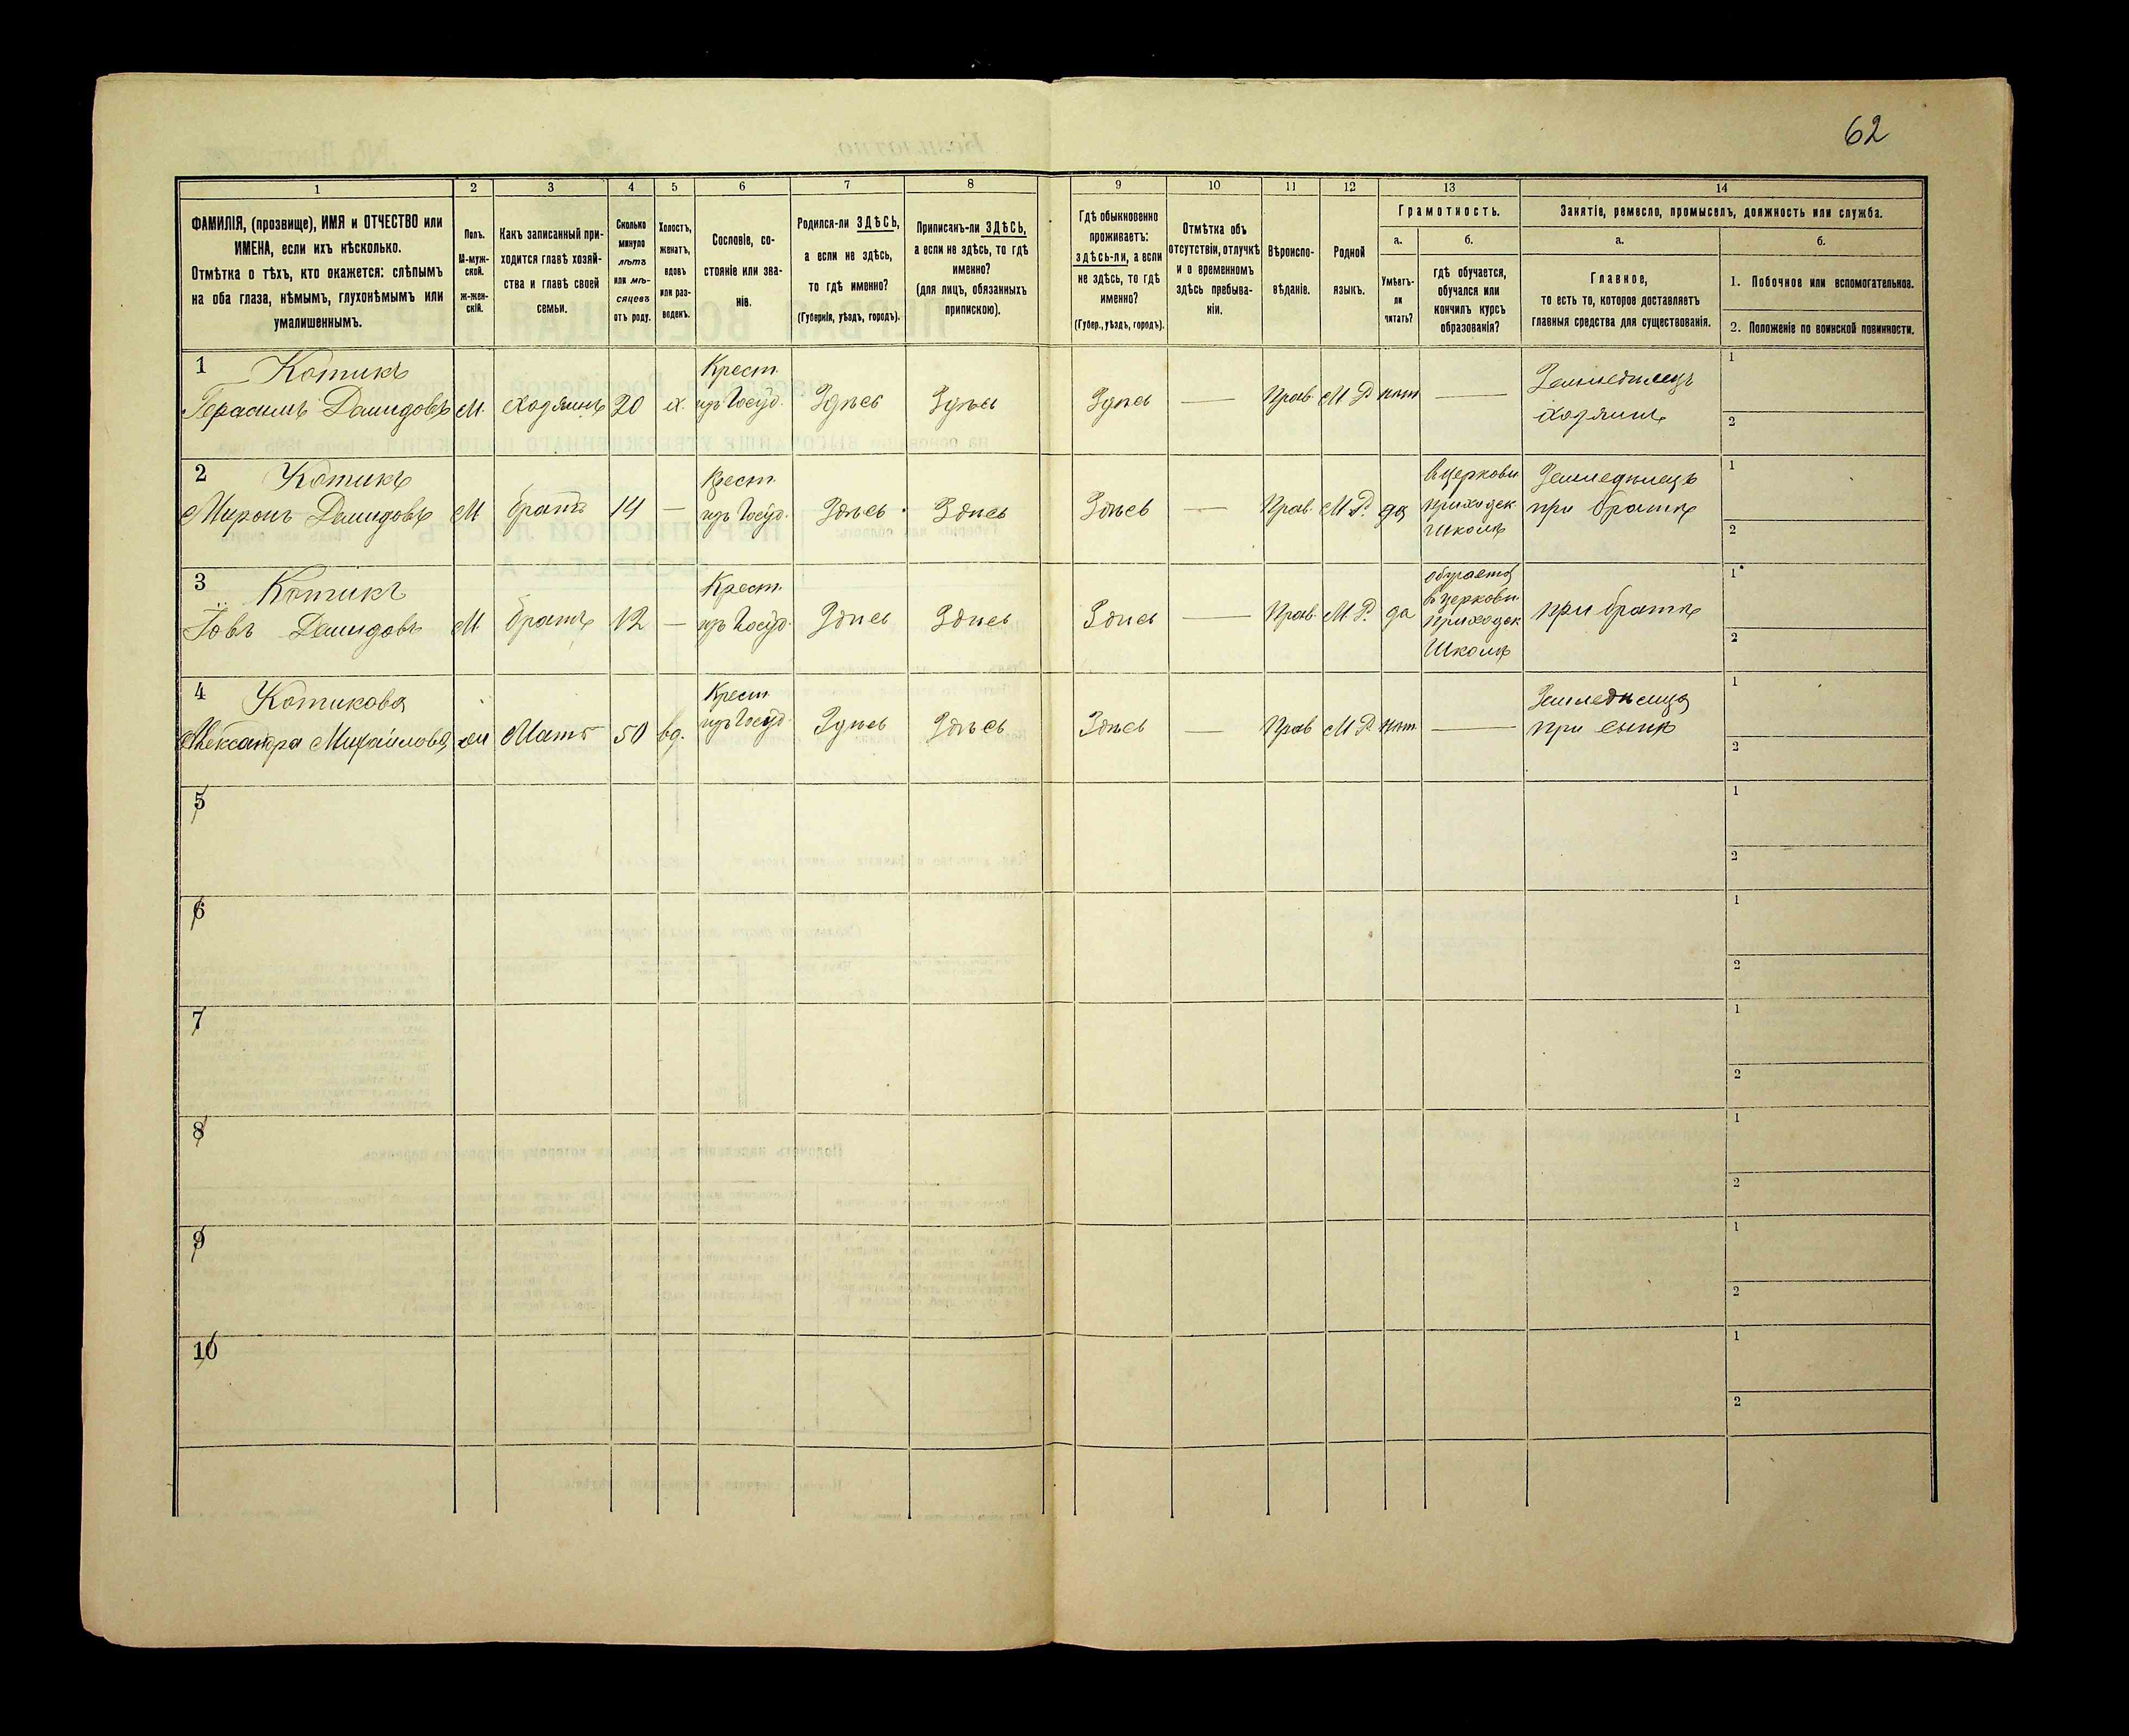 62
1 2 3 4 5 6 7 8 9 10 11 12 13 14
ФАМИЛІЯ, (прозвище), ИМЯ и ОТЧЕСТВО или
ИМЕНА, если ихъ нѣсколько.
Отмѣтка о тѣхъ, кто окажется: слѣпымъ
на оба глаза, нѣмымъ, глухонѣмымъ или
умалишеннымъ.
Полъ.
М-муж-
ской.
ж-жен-
скій.
Какъ записанный при-
ходится главѣ хозяй-
ства и главѣ своей
семьи.
Сколько
минуло
лѣтъ
или мѣ-
сяцевъ
отъ роду.
Холостъ,
женатъ,
вдовъ
или раз-
веденъ.
Сословіе, со-
стояніе или зва-
ніе.
Родился-ли ЗДѢСЬ,
а если не здѣсь,
то гдѣ именно?
(Губернія, уѣздъ, городъ).
Приписанъ-ли ЗДѢСЬ,
а если не здѣсь, то гдѣ
именно?
(для лицъ, обязанныхъ
припискою).
Гдѣ обыкновенно
проживаетъ:
здѣсь-ли, а если
не здѣсь, то гдѣ
именно?
(Губер., уѣздъ, городъ).
Отмѣтка объ
отсутствіи, отлучкѣ
и о временномъ
здѣсь пребыва-
ніи.
Вѣроиспо-
вѣданіе.
Родной
языкъ.
Грамотность.
а.
Умѣетъ-
ли
читать?
б.
гдѣ обучается,
обучался или
кончилъ курсъ
образованія?
Занятіе, ремесло, промыселъ, должность или служба.
а.
Главное,
то есть то, которое доставляетъ
главныя средства для существованія.
б.
1. Побочное или вспомогательное.
2. Положеніе по воинской повинности.
1 Котикъ
Герасимъ Демидовъ
М.
хозяинъ
20
х.
Крест.
изъ Госуд.
Здѣсь
Здѣсь
Здѣсь
—
Прав.
М Р
нѣт
—
Земледѣлецъ
хозяинъ
1
2
2 Котикъ
Миронъ Демидовъ
М
братъ
14
—
Крест.
изъ Госуд.
Здѣсь
Здѣсь
Здѣсь
—
Прав.
М. Р.
да
в церковн
приходск
школѣ
Земледѣлецъ
при братѣ
1
2
3 Котикъ
Іовъ Демидовъ
М.
братъ
12
—
Крест.
изъ Госуд.
Здѣсь
Здѣсь
Здѣсь
—
Прав.
М. Р.
да
обучается
в церковн
приходск
школѣ
при братѣ
1
2
4 Котикова
Александра Михайлова
ж
Мать
50
вд.
Крест.
изъ Госуд.
Здѣсь
Здѣсь
Здѣсь
—
Прав
М Р
нѣт
—
Земледѣлица
при сынѣ
1
2
5
1
2
6
1
2
7
1
2
8
1
2
9
1
2
10
1
2